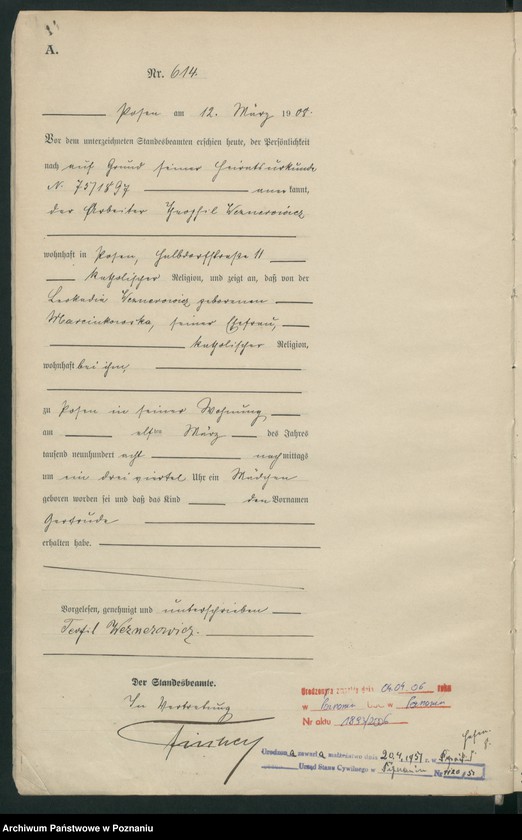 A.
Nr. 614.
Posen am 12. März 1908.
Vor dem unterzeichneten Standesbeamten erschien heute, der Persönlichkeit
nach auf Grund seiner Heiratsurkunde
N. 75/1897 anerkannt,
der Arbeiter Theophil Weznerowicz
wohnhaft in Posen, Halbdorfstraße 11
katholischer Religion, und zeigt an, daß von der
Leokadia Weznerowicz geborenen
Marcinkowska, seiner Ehefrau,
katholischer Religion,
wohnhaft bei ihm,
zu Posen in seiner Wohnung
am elften März des Jahres
tausend neunhundert acht nachmittags
um ein drei viertel Uhr ein Mädchen
geboren worden sei und daß das Kind den Vornamen
Gertrude
erhalten habe.
Vorgelesen, genehmigt und unterschrieben
Teofil Weznerowicz.
Der Standesbeamte.
In Vertretung
dnia 04.09.06 roku
w w Poznań
Nr aktu
zawarł a małżeństwo dnia 20.4.1951 r. w
Urząd Stanu Cywilnego w Poznaniu Nr
Archiwum Państwowe w Poznaniu